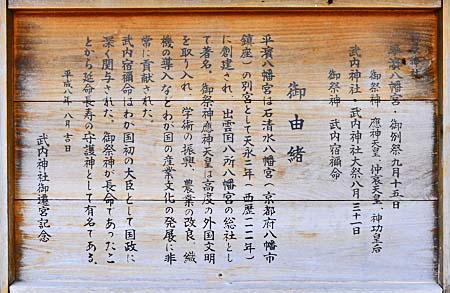 平濱八幡宮・御例祭九月十五日
御祭神 應神天皇、仲哀天皇、神功皇后
武内神社・武内神社大祭八月三十一日
御祭神 武内宿禰命
御由緒
平濱八幡宮は石清水八幡宮(京都府八幡市
鎮座)の別宮として天永二年(西歴一一一一年)
に創建され、出雲国八所八幡宮の総社とし
て著名。御祭神應神天皇は高度の外国文明
を取り入れ、学術の振興、農業の改良、織
機の導入などわが国の産業文化の発展に非
常に貢献された。
武内宿禰命はわか国初の大臣として国政に
深く関与された。御祭神が長命であったこ
とから延命長寿の守護神として有名である。
平成八年八月吉日
武内神社御遷宮記念